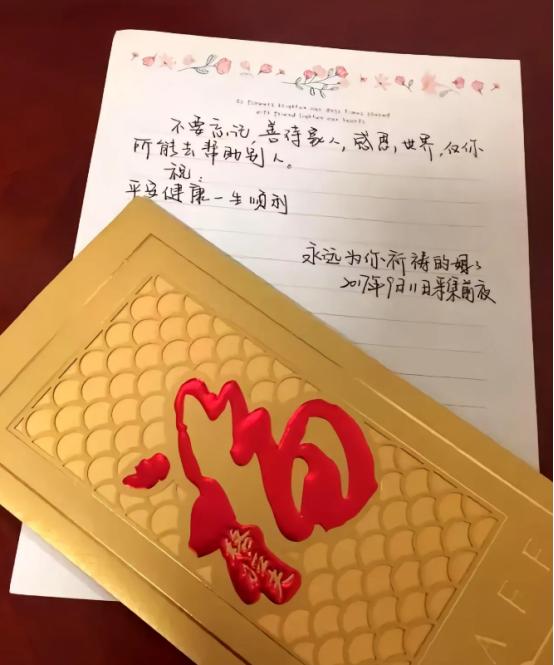 So flowers brighten our days times shared
with friend lighten our hearts
不要忘记,善待家人,感恩世界,仅你
所能去帮助别人。
祝:
平安健康一生顺利
永远为你祈祷的妈妈
2017年9月11日 前夜
福
AFE